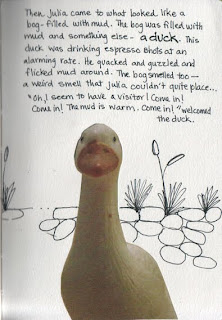 Then, Julia came to what looked, like a
bog - filled with mud. The bog was filled with
mud and something else - a duck. This
duck was drinking espresso shots at an
alarming rate. He quacked and guzzled and
flicked mud around. The bog smelled too —
a weird smell that Julia couldn't quite place...
"Oh, I seem to have a visitor! Come in!
Come in! The mud is warm. Come in!" welcomed
the duck.